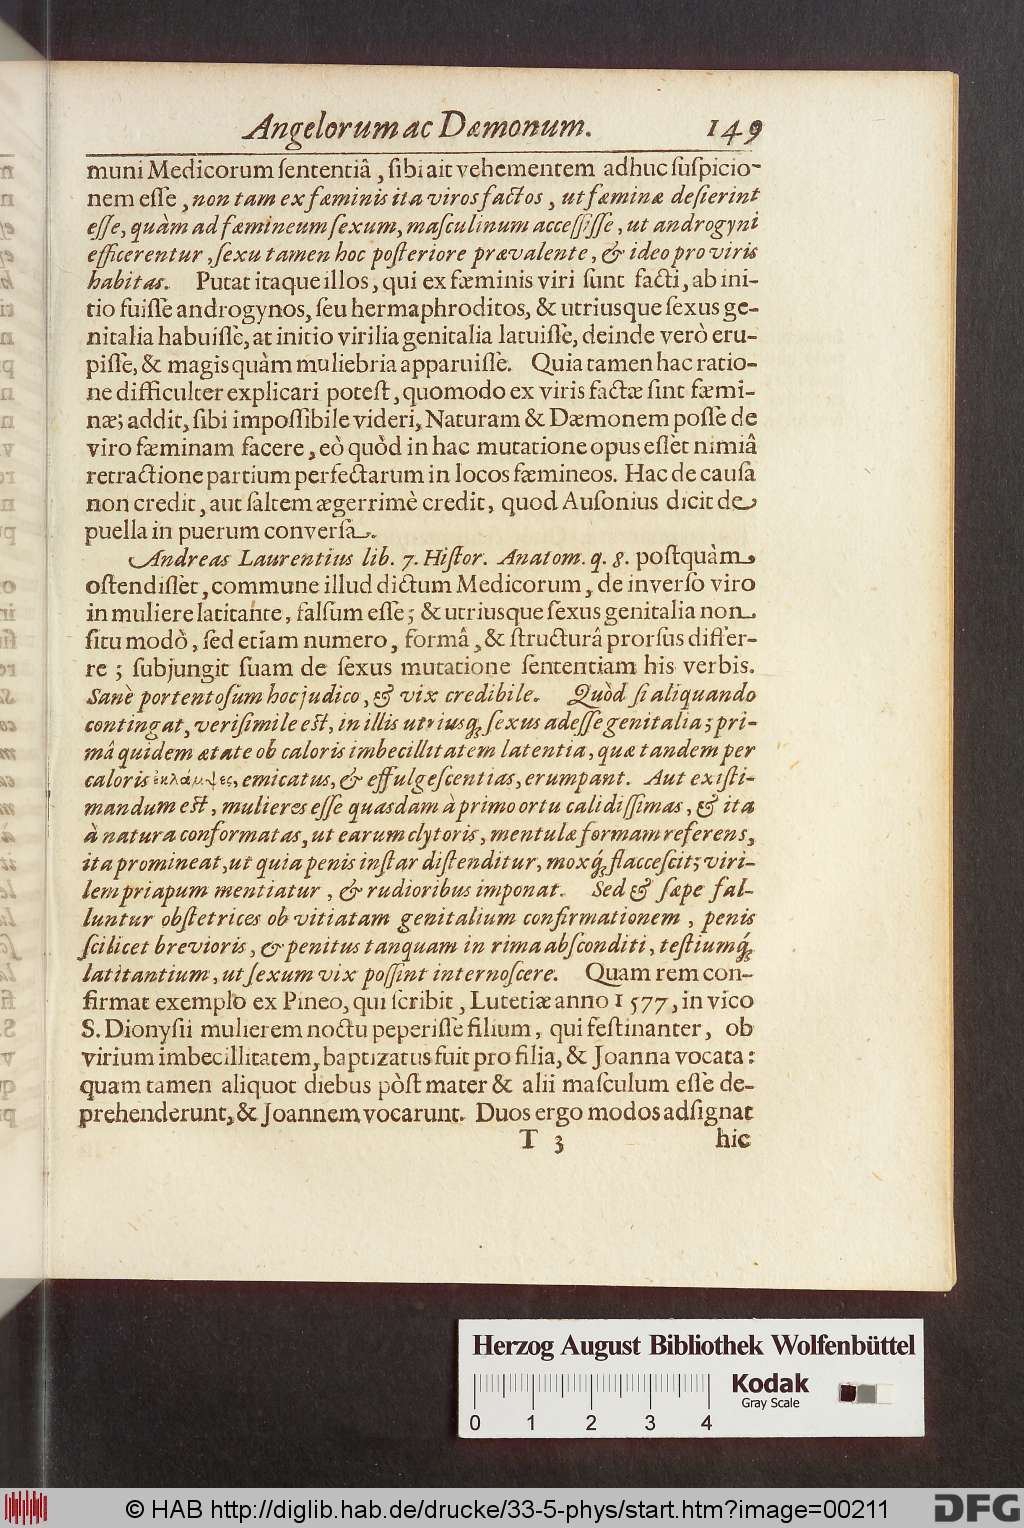 Angelorum ac Dæmonum. 149
muni Medicorum ſententiâ, ſibi ait vehementem adhuc ſuſpicio-
nem eſſe, non tam ex fæminis ita viros factos, ut fæminæ deſierint
eſſe, quàm ad fæmineum ſexum, maſculinum acceſſiſſe, ut androgyni
efficerentur, ſexu tamen hoc poſteriore prævalente, & ideo pro viris
habitas. Putat itaque illos, qui ex fæminis viri ſunt facti, ab ini-
tio fuiſſe androgynos, ſeu hermaphroditos, & utriusque ſexus ge-
nitalia habuiſſe, at initio virilia genitalia latuiſſe, deinde verò eru-
piſſe, & magis quàm muliebria apparuiſſe. Quia tamen hac ratio-
ne difficulter explicari poteſt, quomodo ex viris factæ ſint fæmi-
næ; addit, ſibi impoſſibile videri, Naturam & Dæmonem poſſe de
viro fæminam facere, eò quòd in hac mutatione opus eſſet nimiâ
retractione partium perfectarum in locos fæmineos. Hac de cauſa
non credit, aut ſaltem ægerrimè credit, quod Auſonius dicit de
puella in puerum converſa.
Andreas Laurentius lib. 7. Hiſtor. Anatom. q. 8. poſtquàm
oſtendiſſet, commune illud dictum Medicorum, de inverſo viro
in muliere latitante, falſum eſſe; & utriusque ſexus genitalia non
ſitu modò, ſed etiam numero, formâ, & ſtructurâ prorſus differ-
re; ſubjungit ſuam de ſexus mutatione ſententiam his verbis.
Sanè portentoſum hoc judico, & vix credibile. Quòd ſi aliquando
contingat, veriſimile eſt, in illis utriusq́; ſexus adeſſe genitalia; pri-
mâ quidem ætate ob caloris imbecillitatem latentia, quæ tandem per
caloris ἐκλάμψεις, emicatus, & effulgeſcentias, erumpant. Aut exiſti-
mandum eſt, mulieres eſſe quasdam à primo ortu calidiſſimas, & ita
à natura conformatas, ut earum clytoris, mentulæ formam referens,
ita promineat, ut quia penis inſtar diſtenditur, moxq́; flacceſcit; viri-
lem priapum mentiatur, & rudioribus imponat. Sed & ſæpe fal-
luntur obſtetrices ob vitiatam genitalium confirmationem, penis
ſcilicet brevioris, & penitus tanquam in rima abſconditi, teſtiumq́;
latitantium, ut ſexum vix poſſint internoſcere. Quam rem con-
firmat exemplo ex Pineo, qui ſcribit, Lutetiæ anno 1577, in vico
S. Dionyſii mulierem noctu peperiſſe filium, qui feſtinanter, ob
virium imbecillitatem, baptizatus fuit pro filia, & Joanna vocata:
quam tamen aliquot diebus pòſt mater & alii maſculum eſſe de-
prehenderunt, & Joannem vocarunt. Duos ergo modos adſignat
T 3 hic
Herzog August Bibliothek Wolfenbüttel
Kodak
Gray Scale
0 1 2 3 4
© HAB http://diglib.hab.de/drucke/33-5-phys/start.htm?image=00211
DFG